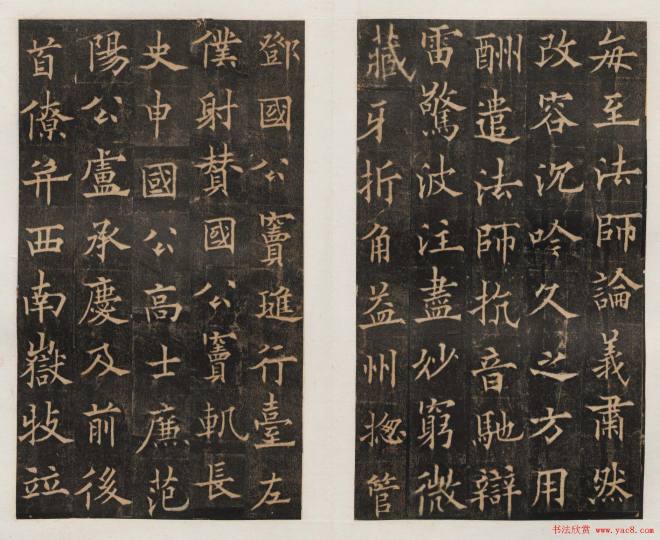 每至法師論義肅然
改容沉吟久之方用
酬遣法師抗音馳辯
雷驚波注盡妙窮微
藏牙折角益州揔管
鄧國公竇璡行臺左
僕射贊國公竇軌長
史申國公高士廉范
陽公盧承慶及前後
首僚并西南嶽牧竝
书法欣赏 @ www.yac8.com